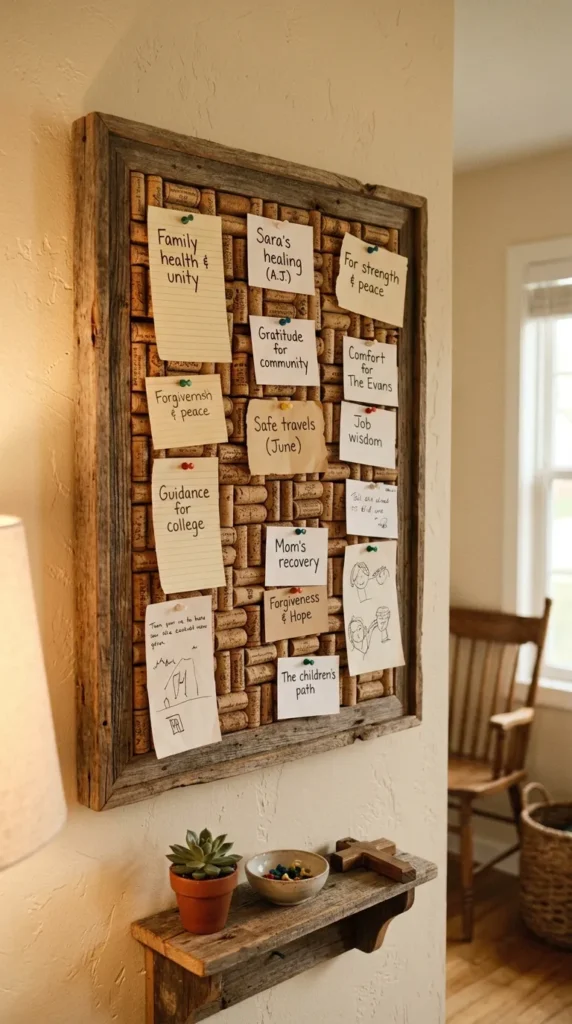 Family
health &
unity
Sara's
healing
(A.J.)
For strength
& peace
Gratitude
for
community
Comfort
for
The Evans
& peace
Safe travels
(June)
Job
wisdom
Guidance
for
college
Mom's
recovery
Forgiveness
& Hope
The children's
path